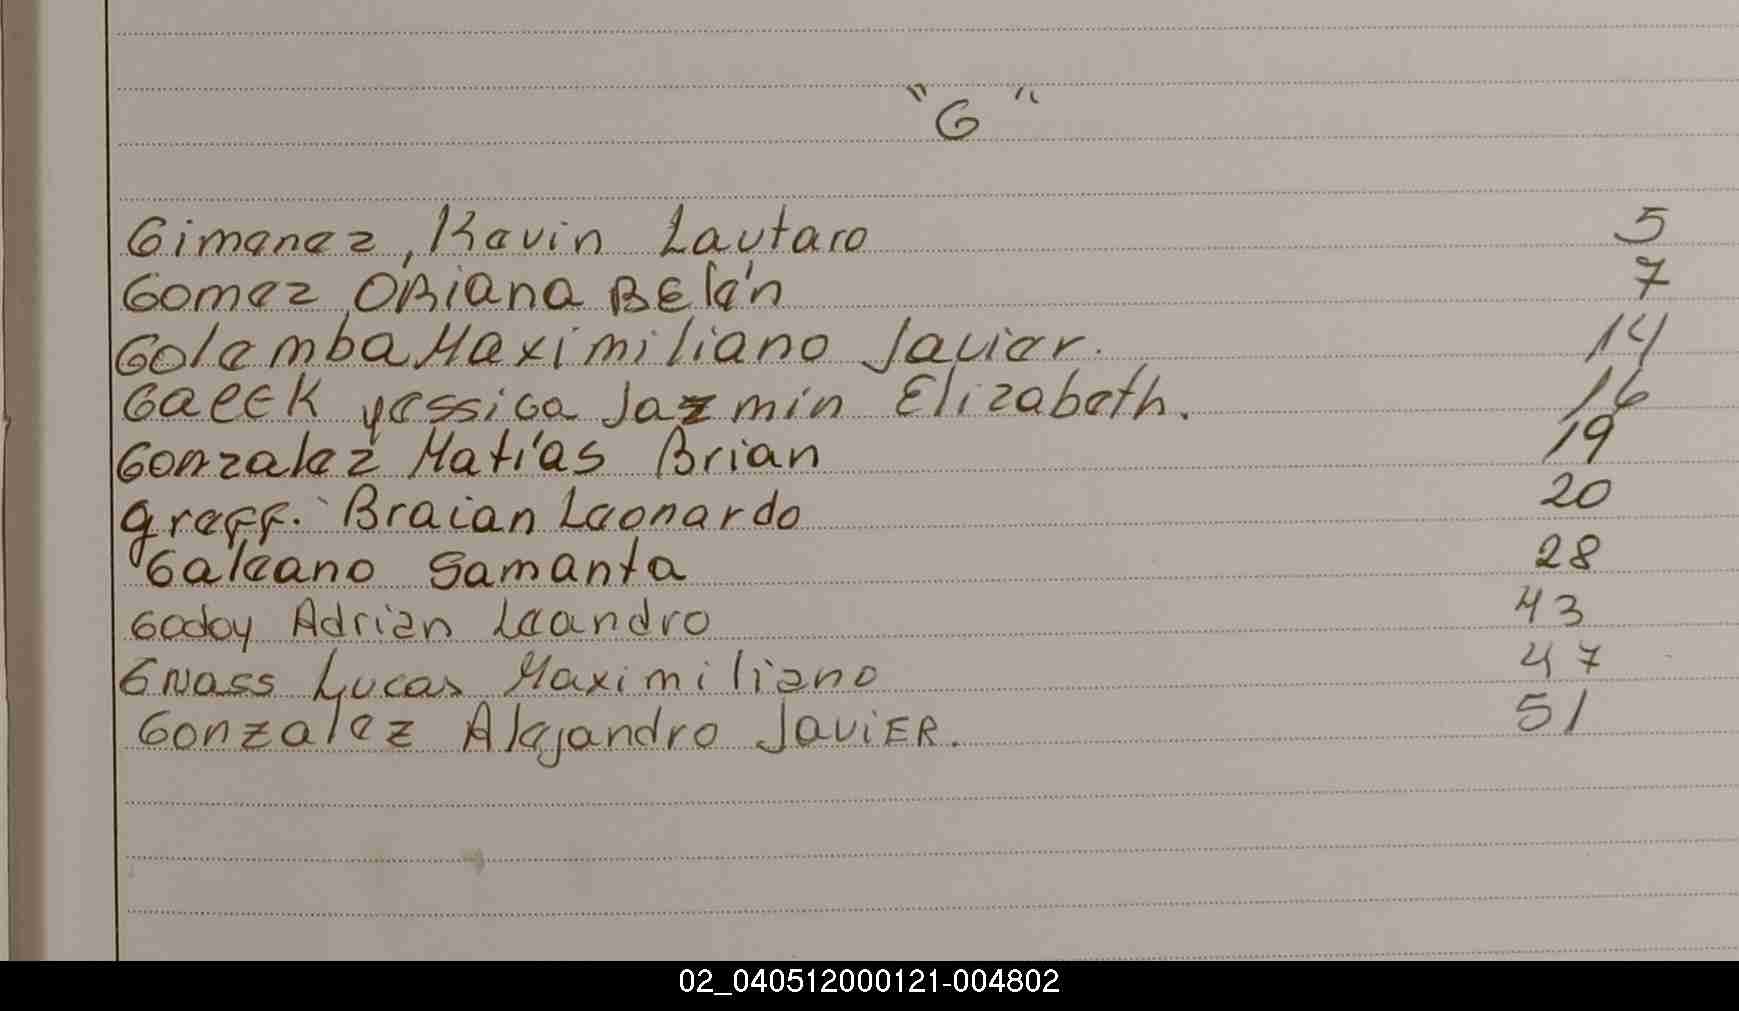 "G"
Gimenez, Kevin Lautaro 5
Gomez, ORiana BElén 7
Golemba Maximiliano Javier. 14
Yessica Jazmin Elizabeth. 16
Gonzalez Matías Brian 19
Greff. Braian Leonardo 20
Galeano Samanta 28
Godoy Adrian Leandro 43
GNass Lucas Maximiliano 47
Gonzalez Alejandro JaviER. 51
02_040512000121-004802